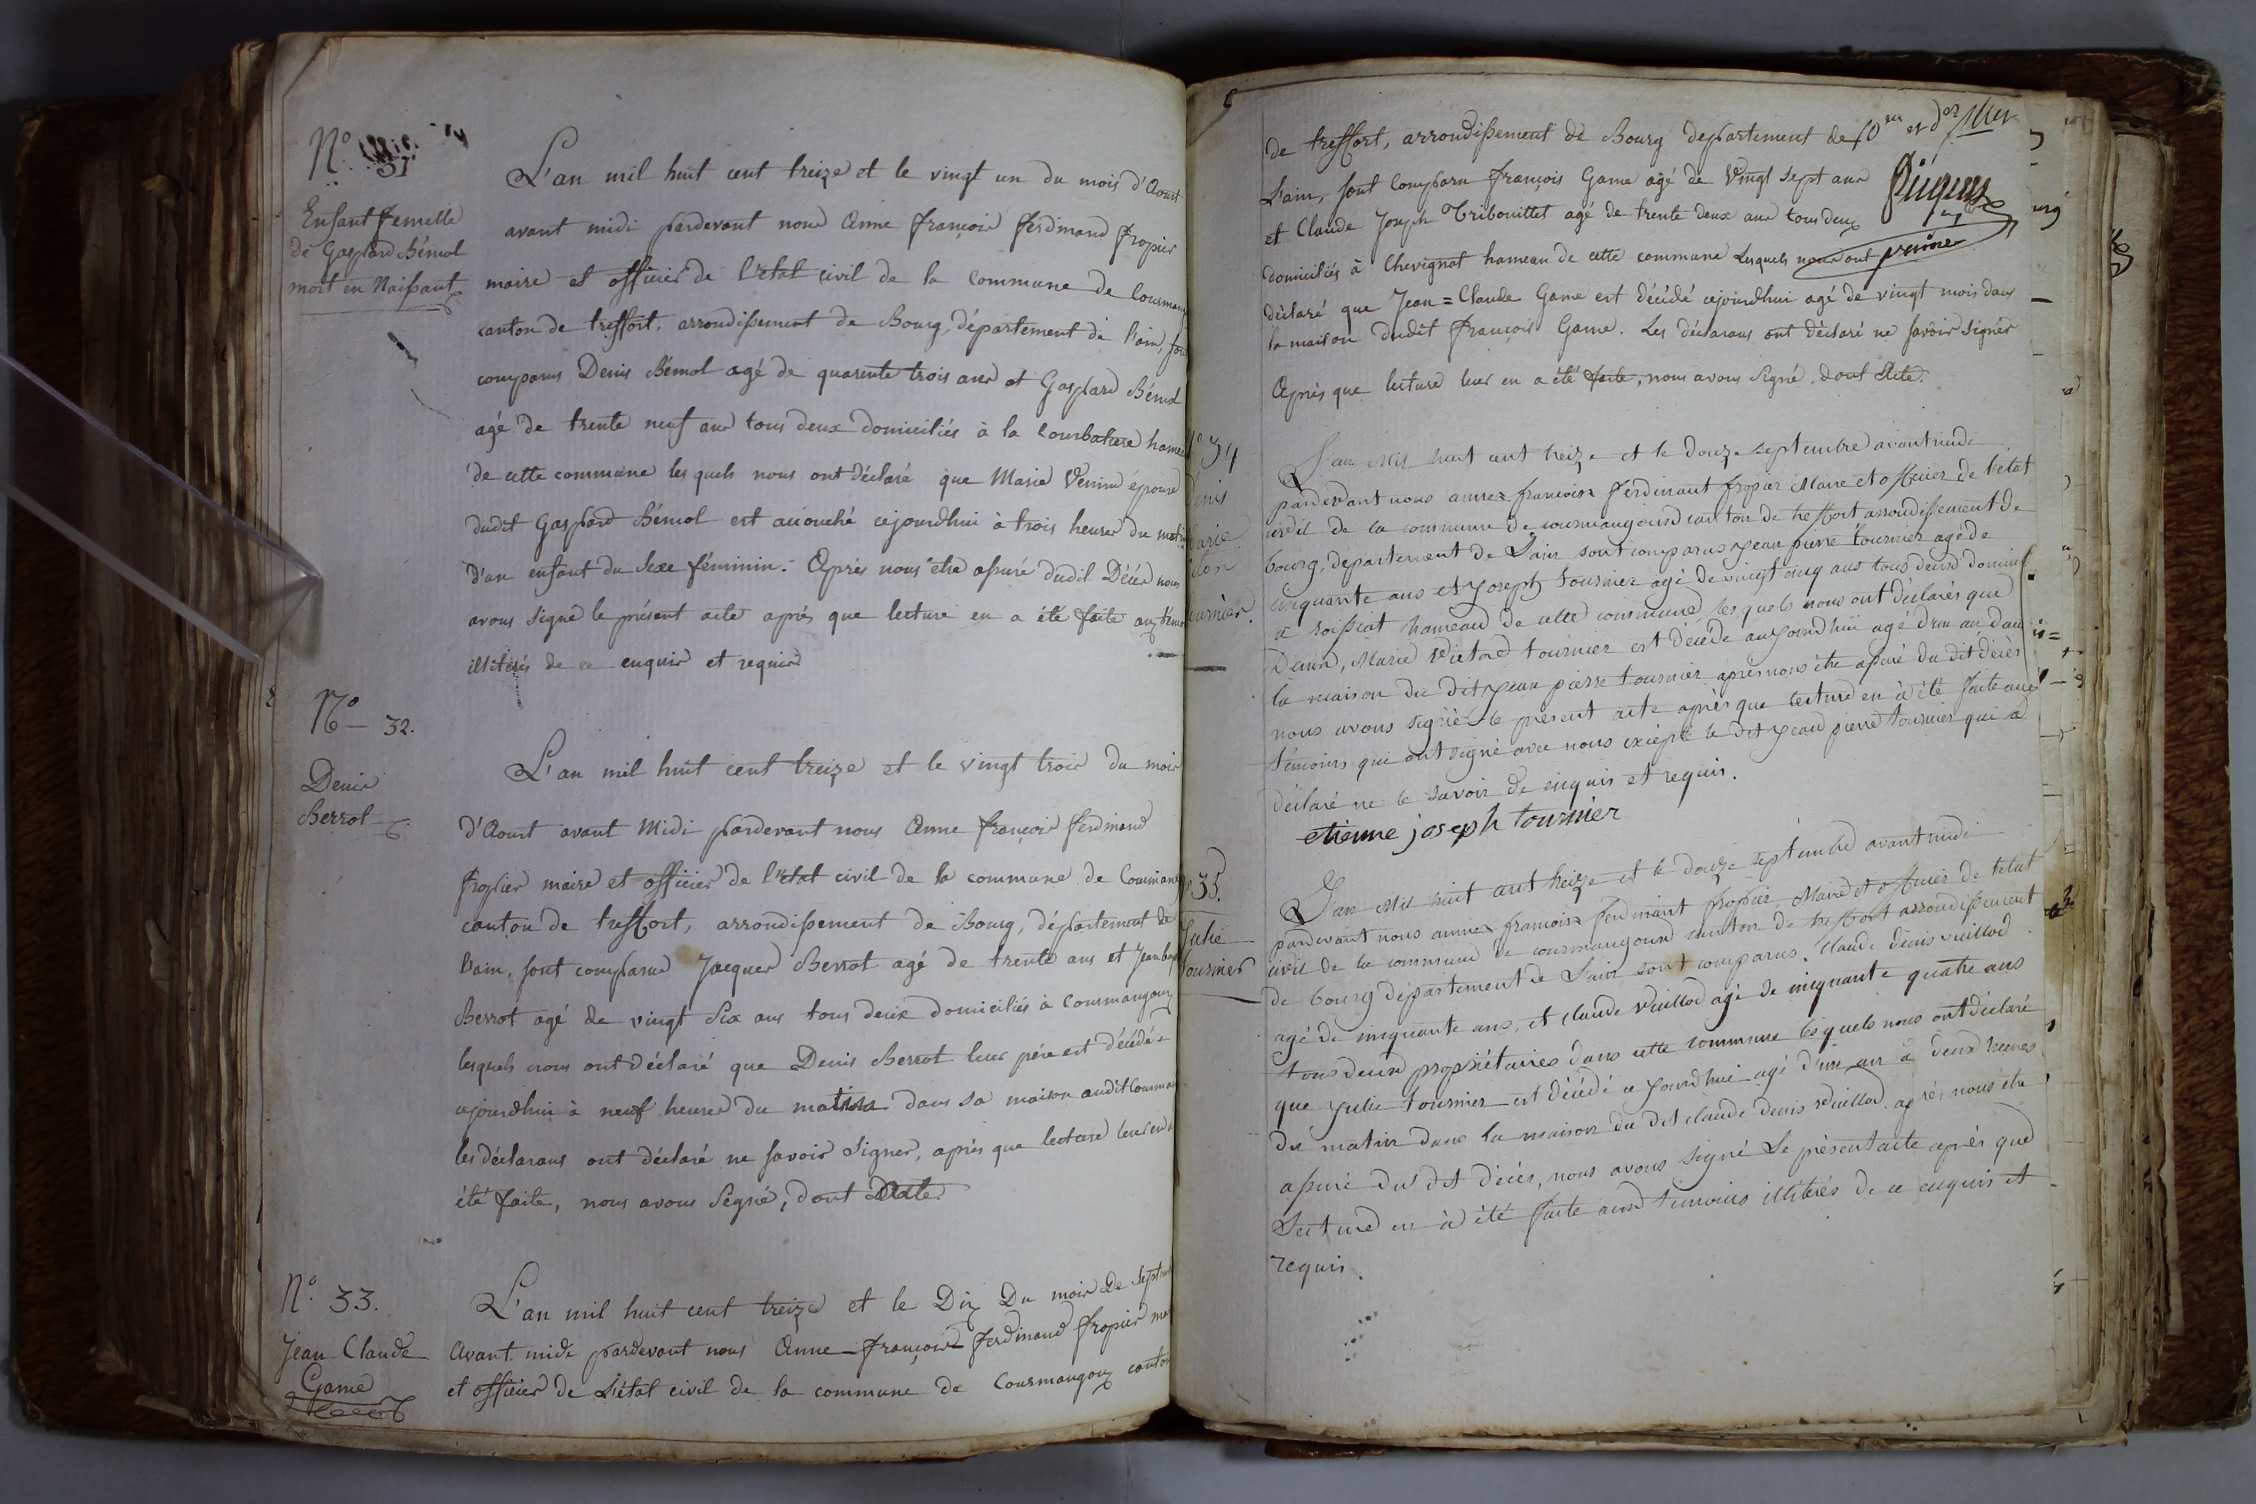 N.° 31
Enfant femelle
de Gaspard Bémol
mort en Naissant
L'an mil huit cent treize et le vingt un du mois d'Aoust
avant midi pardevant nous Anne françois ferdinand fropier
maire et officier de l'etat civil de la commune de Courman
canton de treffort. arrondissement de Bourg, département de l'ain, son
comparus Denis Bémol agé de quarente trois ans et Gaspard Bémol
agé de trente neuf ans tous deux domiciliés à la Courbature hame
de cette commune les quels nous ont déclaré que Marie épouse
dudit Gaspard Bémol est accouché cejourdhui à trois heures du mati
d'un enfant du sexe féminin. Après nous être assuré dudit Décès nous
avons signé le présent acte après que lecture en a été faite aux témo
illitérés de ce enquis et requis
N° 32.
Denis
Berrot
L'an mil huit cent treize et le vingt trois du mois
d'Aoust avant Midi pardevant nous Anne françois ferdinand
fropier maire et officier de l'etat civil de la commune de Courmang
canton de treffort, arrondissement de Bourg, département de
l'ain, sont comparus Jacques Berrot agé de trente ans et Jean bap
Berrot agé de vingt six ans tous deux domiciliés à Courmangoux
lesquels nous ont déclaré que Denis Berrot leur père est décédé
cejourdhui à neuf heures du matin dans sa maison audit Courman
les déclarans ont déclaré ne savoir signer, après que lecture leur en a
été faite, nous avons signé, dont Acte
N.° 33.
Jean Claude
Game
L'an mil huit cent treize et le Dix Du mois de septem
Avant midi pardevant nous Anne françois ferdinand fropier ma
et officier de L'état civil de la commune de Courmangoux canton
de treffort, arrondissement de Bourg departement de
L'ain, sont comparu françois Game agé de vingt sept ans
et Claude Joseph Tribouillet agé de trente deux ans tous deux
domiciliés à Chevignat hameau de cette commune Lesquels nous ont
déclaré que Jean=Claude Game est décédé cejourdhui agé de vingt mois dans
la maison dudit françois Game. Les déclarans ont déclaré ne savoir signer
Après que lecture leur en a été faite, nous avons signé, dont Acte.
10.me et d.er
34
L'an Mil huit cent treize et le douze septembre avant midi
pardevant nous annez francoix ferdinant fropier Maire et officier de l'état
civil de la commune de courmangoud canton de treffort arrondissement de
bourg, departement de Lain sont comparus jean pierre tournier agé de
cinquante ans et joseph tournier agé de vingt cinq ans tous deux domicil
a roissiat hameau de cette commune les quels nous ont déclarés que
Denis, Marie Victor tournier est décédé aujourdhui agé d'un an dans
la maison du dit jean pierre tournier après nous être assuré du dit décès
nous avons signé le présent acte après que lecture en à été faite aux
témoins qui ont signé avec nous excepté le dit jean pierre tournier qui a
déclaré ne le savoir de enquis et requis.
etienne joseph tournier
35.
Julie
tournier
L'an Mil huit cent treize et le douze septembre avant midi
pardevant nous annez francoix ferdinant fropier Maire et officier de l'etat
civil de la commune de courmangoud canton de treffort arrondissement
de bourg département de Lain sont comparus. Claude denis vuillod
agé de cinquante ans, et claude vuillod agé de cinquante quatre ans
tous deux propriétaires dans cette commune lesquels nous ont déclaré
que julie tournier est décédé ce jourdhui agé d'un an à deux heures
du matin dans la maison du dit claude denis vuillod. après nous être
assuré du dit décès, nous avons signé Le présent acte après que
Lecture en à été faite aux temoins illitérés de ce enquis et
requis.